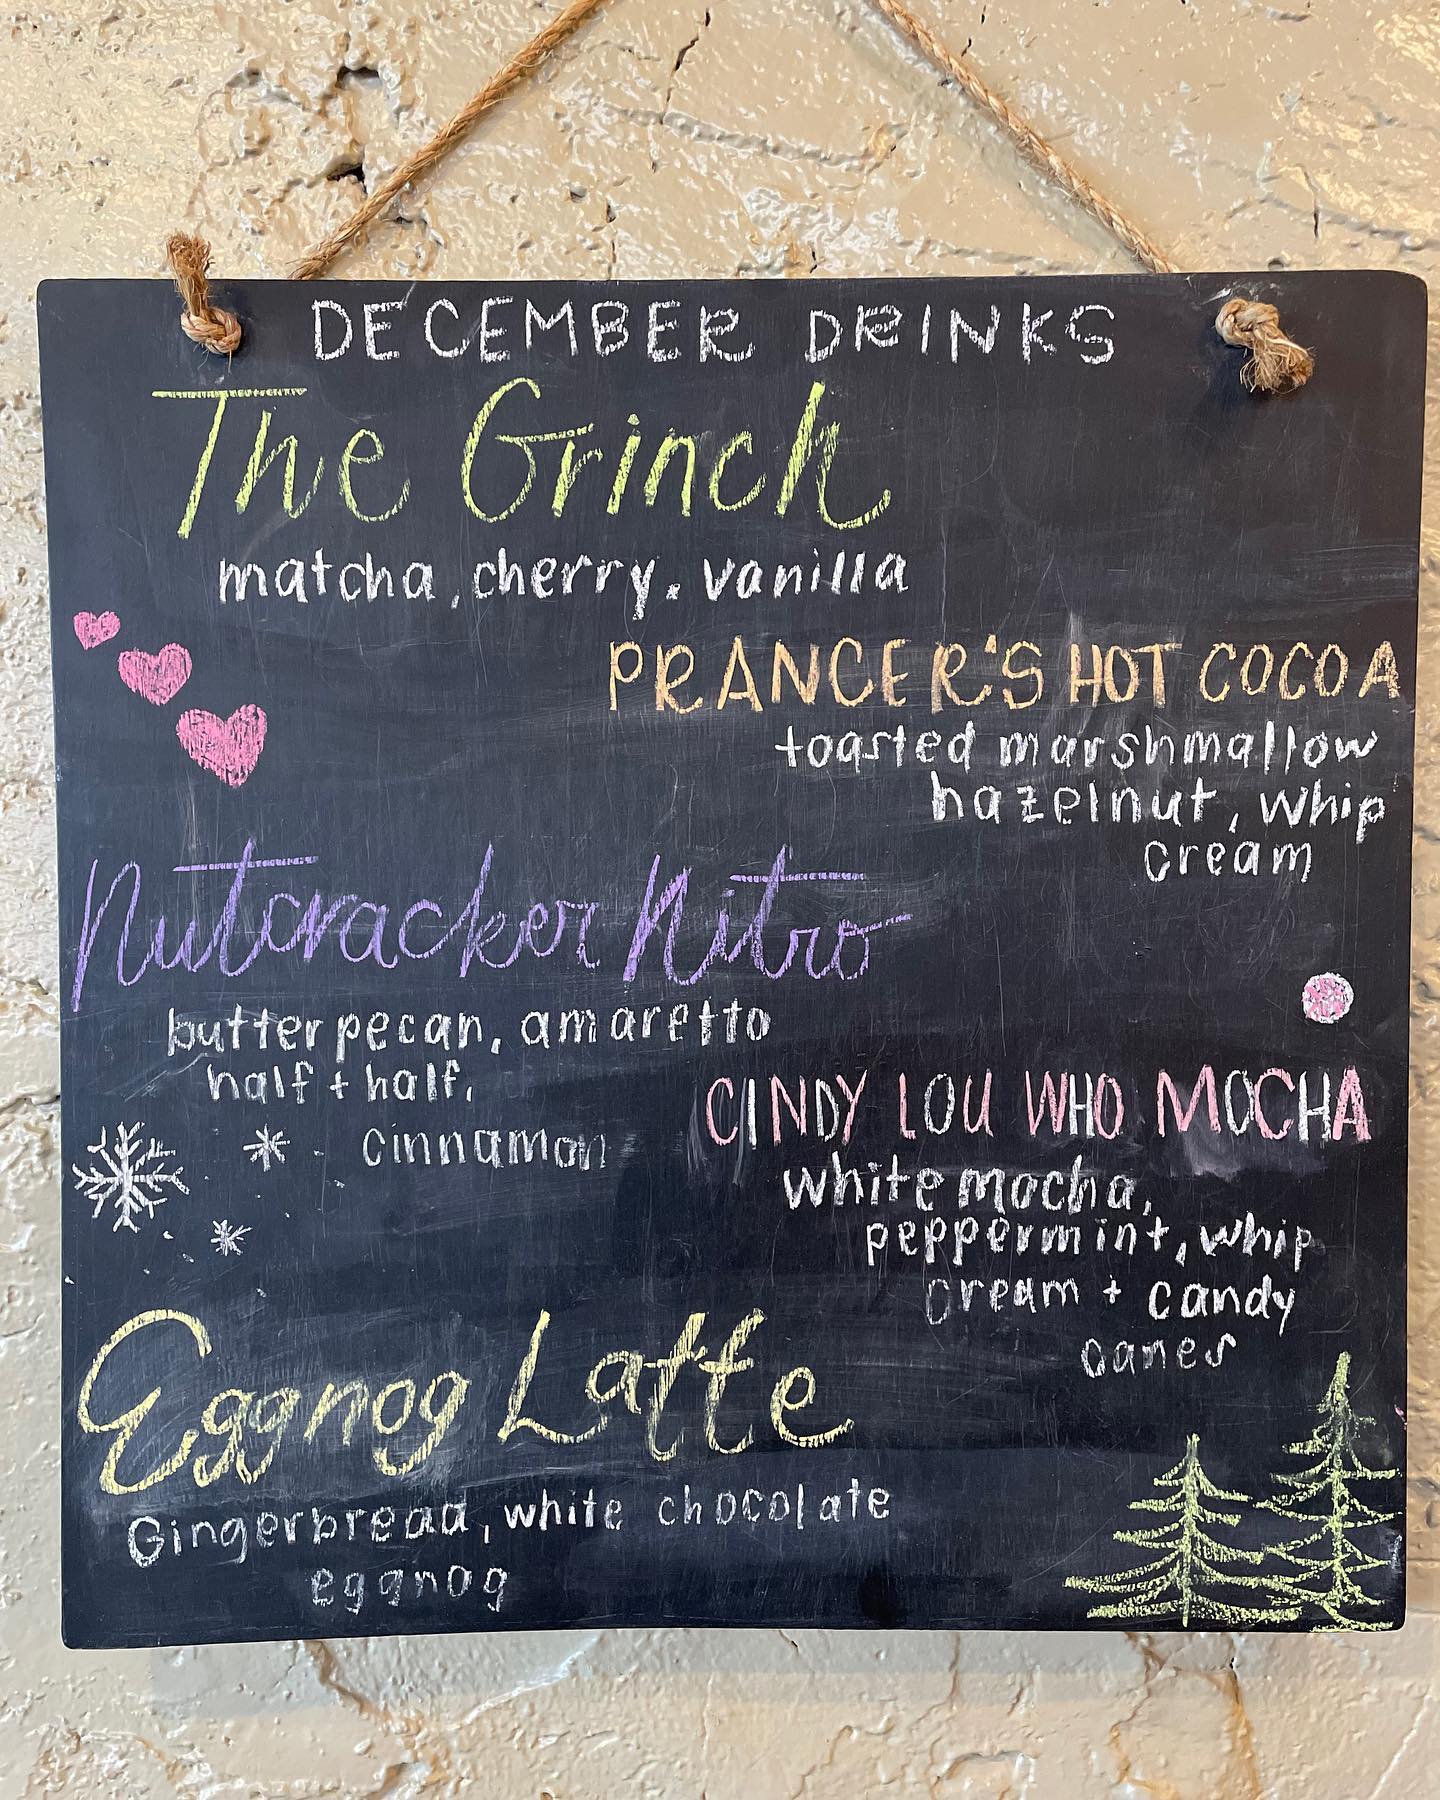 DECEMBER DRINKS
The Grinch
matcha, cherry, vanilla
PRANCER'S HOT COCOA
toasted marshmallow
hazelnut, whip
cream
Nutcracker Nitro
butter pecan, amaretto
half + half,
cinnamon
CINDY LOU WHO MOCHA
white mocha,
peppermint, whip
cream + candy
canes
Eggnog Latte
Gingerbread, white chocolate
eggnog